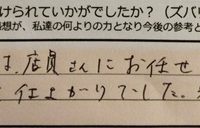 けられていかがでしたか？（ズバリ
想が、私達の何よりの力となり今後の参考と
は、店員さんにお任せ
仕上がりでした。